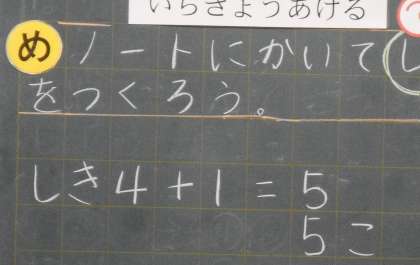 いちぎょうあける
め ノートにかいて し
をつくろう。
しき 4+1=5
5こ